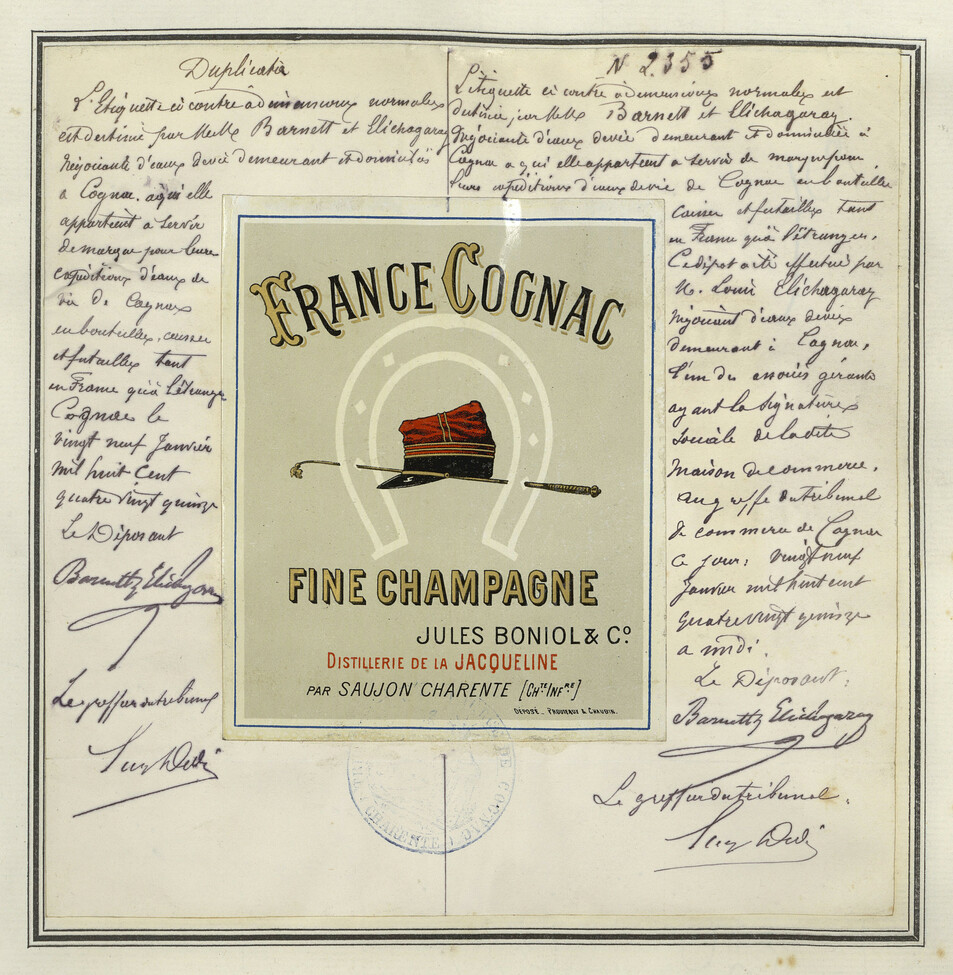 Duplicata
L'Etiquette ci contre à dimensions normales
est destinée par MM. Barnett et Elichagaray
Négociants d'eaux de vie demeurant et domiciliés
à Cognac. à qui elle
appartient à servir
de marque pour leurs
expéditions d'eaux de
vie de Cognac
en bouteilles, caisses
et futailles tant
en France qu'à l'étranger
Cognac le
vingt neuf Janvier
mil huit cent
quatre vingt quinze
Le Déposant
Barnett & Elichagaray
Le greffier du tribunal
N 2355
L'étiquette ci contre à dimensions normales est
destinée, par MM. Barnett et Elichagaray.
Négociants d'eaux de vie demeurant et domiciliés à
Cognac a qui elle appartient a servir de marque pour
leurs expéditions d'eaux de vie de Cognac en bouteilles
caisses et futailles tant
en France qu'à l'étranger.
Ce dépot a été effectué par
M. Louis Elichagaray
Négociant d'eaux de vie
demeurant à Cognac,
l'un des associés gérants
ayant la signature
sociale de la dite
maison de commerce,
au greffe du tribunal
de commerce de Cognac
ce jour, vingt neuf
Janvier mil huit cent
quatre vingt quinze
a midi.
Le Déposant:
Barnett & Elichagaray
Le greffier du tribunal.
FRANCE COGNAC
FINE CHAMPAGNE
JULES BONIOL & Cº
DISTILLERIE DE LA JACQUELINE
PAR SAUJON CHARENTE [CHTE INFRE]
DÉPOSÉ
DE COGNAC
CHARENTE